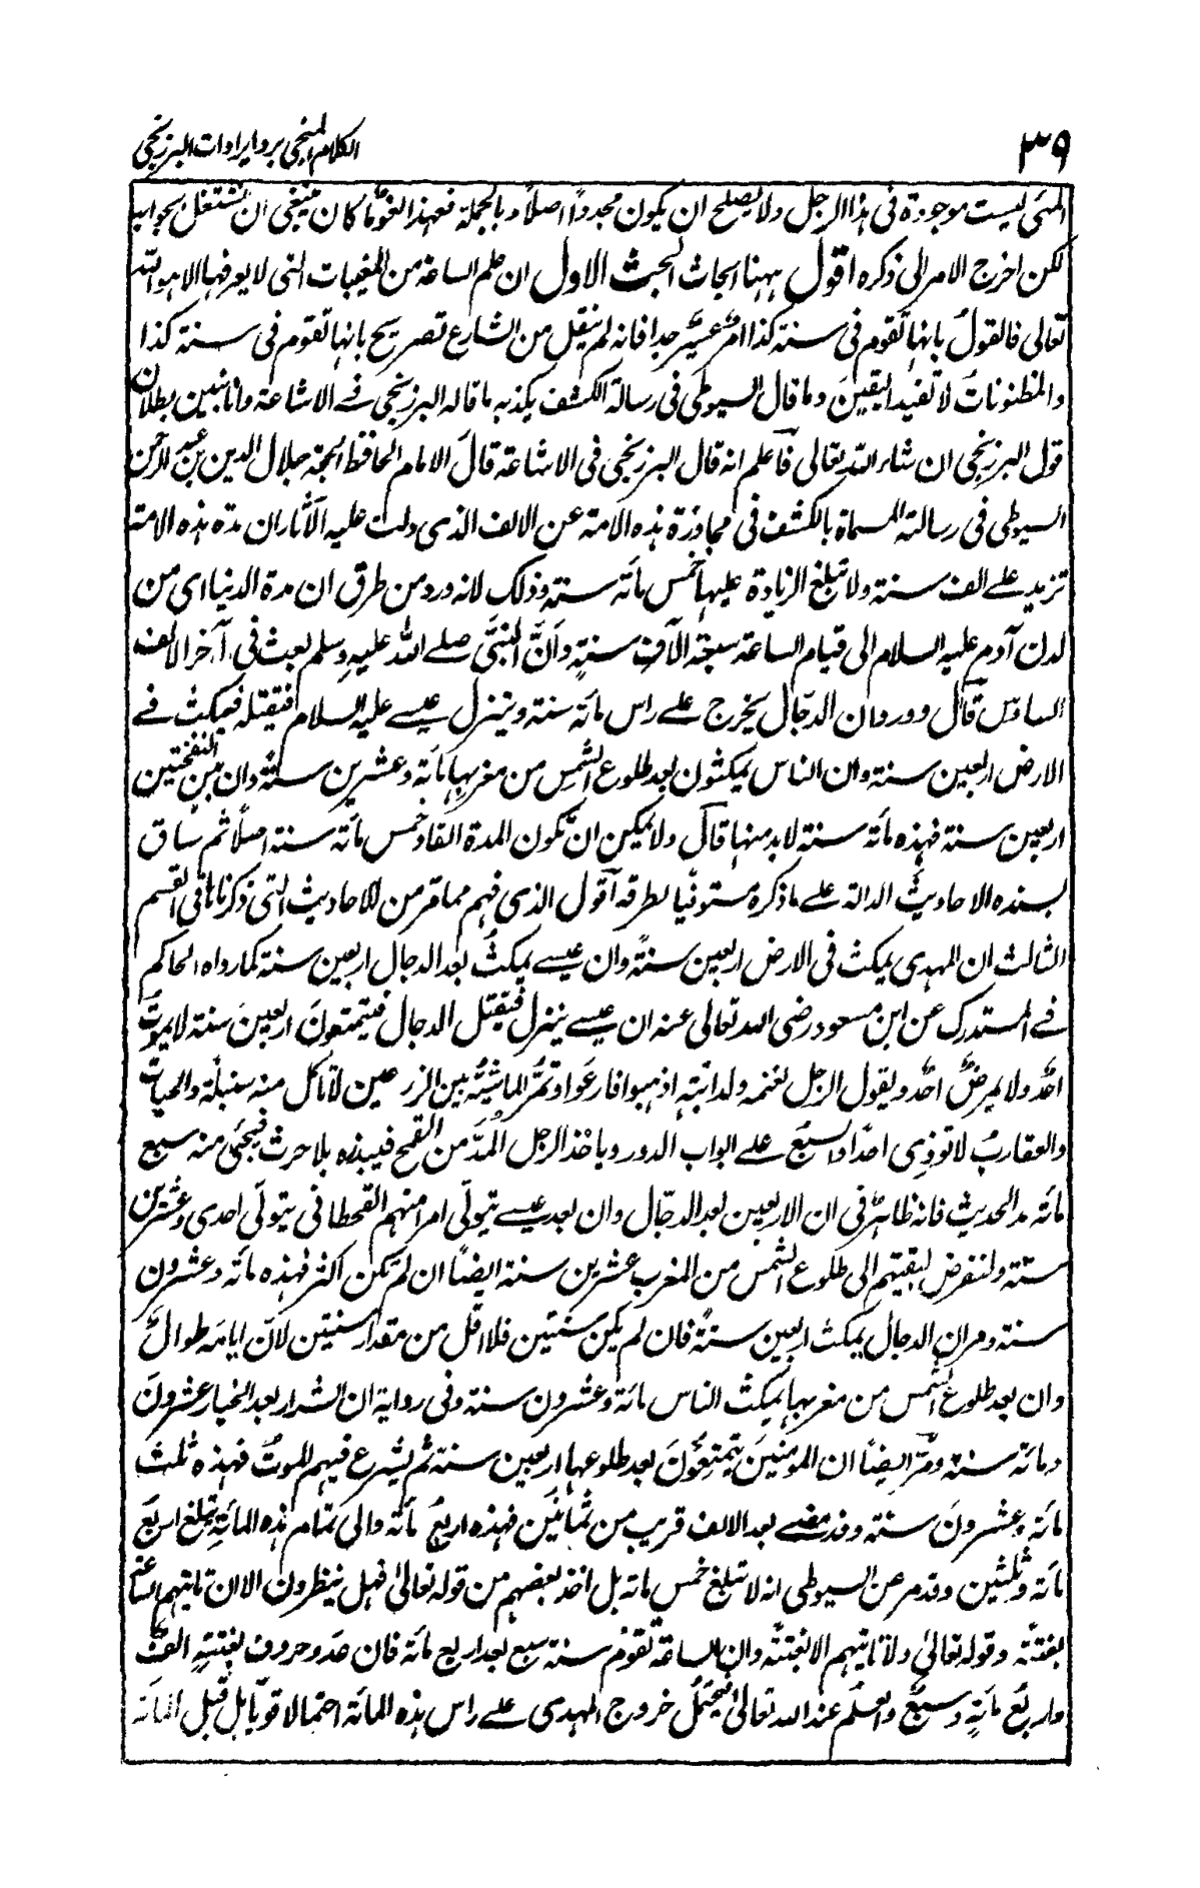 ٣٩
الكلام المنجي برد ايرادات البرزنجي
المئ ليست موجودة في هذا الرجل ولا يصلح ان يكون مجددًا اصلًا وبالجملة فعهذا الغوغا كان ينبغي ان نشتغل بجوابه
لكن اخرج الامر الى ذكره اقول ههنا ابحاث البحث الاول ان علم الساعة من المغيبات التي لا يعرفها الا هو الله
تعالى فالقول بانها تقوم في سنة كذا امر عسير جدا فانه لم ينقل من الشارع تصريح بانها تقوم في سنة كذا
والمظنونات لا تفيد اليقين وما قال السيوطي في رسالة الكشف يكذبه ما قاله البرزنجي في الاشاعة وانا نبين بطلان
قول البرزنجي ان شاء الله تعالى فاعلم انه قال البرزنجي في الاشاعة قال الامام الحافظ الحجة جلال الدين بن عبد الرحمن
السيوطي في رسالته المسماة بالكشف في مجاوزة هذه الامة عن الالف الذي دلت عليه الآثار ان مدة هذه الامة
تزيد على الف سنة ولا تبلغ الزيادة عليها خمس مائة سنة وذلك لانه ورد من طرق ان مدة الدنيا اي من
لدن آدم عليه السلام الى قيام الساعة سبعة آلاف سنةٍ وانَّ النبيَّ صلى الله عليه وسلم بعث في آخر الالف
السادس قال وورد ان الدجّال يخرج على راس مائة سنة وينزل عيسى عليه السلام فيقتله فيمكث في
الارض اربعين سنة وان الناس يمكثون بعد طلوع الشمس من مغربها مائة وعشرين سنةً وان بين النفختين
اربعين سنة فهذه مائة سنة لابد منها قال ولا يمكن ان تكون المدة الفا وخمس مائة سنة اصلًا ثم ساق
بسنده الاحاديث الدالة على ما ذكره مستوفيًا بطرقه اقول الذي فهم مما مر من الاحاديث التي ذكرناها في القسم
الثالث ان المهدي يمكث في الارض اربعين سنةً وان عيسى يمكث بعد الدجال اربعين سنة كما رواه الحاكم
في المستدرك عن ابن مسعود رضي الله تعالى عنه ان عيسى ينزل فيقتل الدجال فيتمتعون اربعين سنة لا يموت
احدٌ ولا يمرض احدٌ ويقول الرجل لغنمه ولدابّته اذهبوا فارعوا وتمرُّ الماشيةُ بين الزرعين لا تاكل منه سنبلة والحيات
والعقارب لا توذي احدًا والسبع على ابواب الدور وياخذ الرجل المدَّ من القمح فيبذره بلا حرث فيجئ منه سبع
مائة مد الحديث فانه ظاهرٌ في ان الاربعين بعد الدجّال وان بعد عيسى يتولّى امرا منهم القحطاني يتولّى احدى وعشرين
سنة ولنفرض لبقيتهم الى طلوع الشمس من المغرب عشرين سنة ايضًا ان لم تكن اكثر فهذه مائة وعشرون
سنة ومر ان الدجال يمكث اربعين سنةً فان لم يكن سنتين فلا اقل من مقدار سنتين لان ايامه طوال
وان بعد طلوع الشمس من مغربها يمكث الناس مائة وعشرون سنة وفي رواية ان الشرار بعد الخيار عشرون
ومائة سنة ومرّ ايضًا ان المومنين يتمتعون بعد طلوعها اربعين سنة ثم يشرع فيهم الموت فهذه ثلث
مائة وعشرون سنة وقد مضى بعد الالف قريب من ثمانين فهذه اربع مائة والى تمام هذه المائة تبلغ اربع
مائة وثلثين وقد مر عن السيوطي انه لا تبلغ خمس مائة بل اخذ بعضهم من قوله تعالى فهل ينظرون الا ان تاتيهم الساعة
بغتةً وقوله تعالى ولا تاتيهم الا بغتةً وان الساعة تقوم سنة سبع بعد اربع مائة فان عدد حروف بغتةٍ الفٌ
واربع مائةٍ وسبعٌ والعلم عند الله تعالى فيحتمل خروج المهدي على راس هذه المائة احتمالا قويًا بل قبل المائة